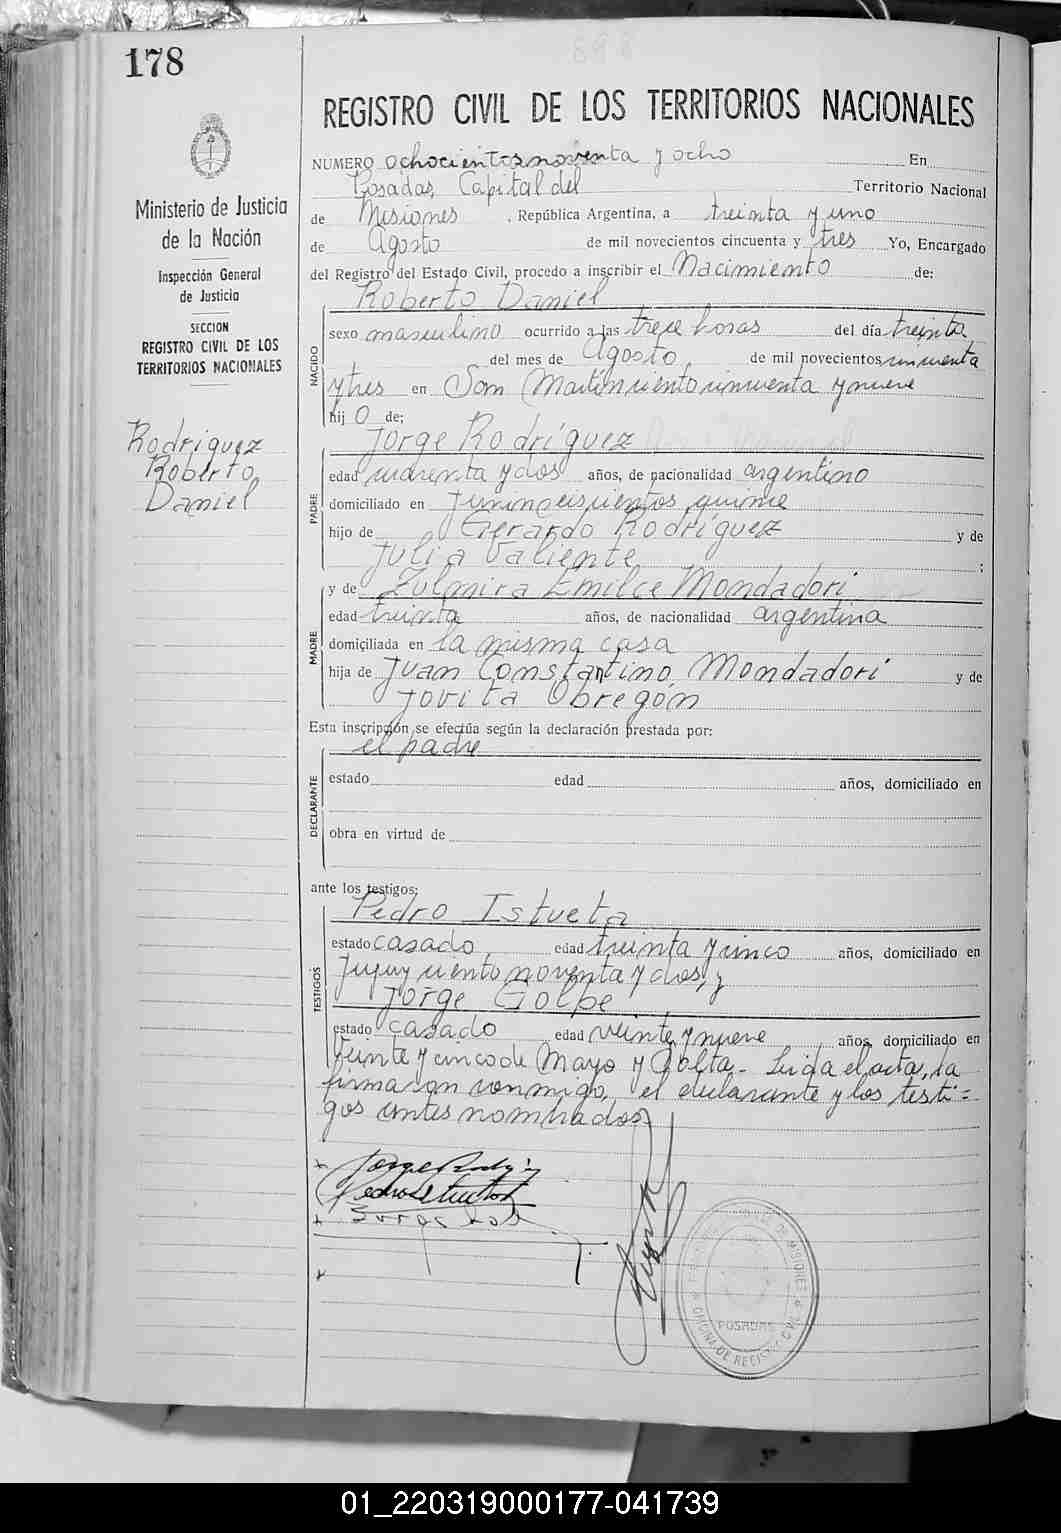 178
REGISTRO CIVIL DE LOS TERRITORIOS NACIONALES
NUMERO ochocientos noventa y ocho En
Posadas, Capital del Territorio Nacional
de Misiones, República Argentina, a treinta y uno
de Agosto de mil novecientos cincuenta y tres Yo, Encargado
del Registro del Estado Civil, procedo a inscribir el Nacimiento de:
Roberto Daniel
NACIDO
sexo masculino ocurrido a las trece horas del día treinta
del mes de Agosto, de mil novecientos cincuenta
y tres en San Martin ciento cincuenta y nueve
hij o de:
Jorge Rodríguez
PADRE
edad cuarenta y dos años, de nacionalidad argentino
domiciliado en Junin seiscientos quince
hijo de Gerardo Rodríguez y de
Julia Valiente ;
MADRE
y de Zulmira Emilce Mondadori
edad treinta años, de nacionalidad argentina
domiciliada en la misma casa
hija de Juan Constantino Mondadori y de
Jovita Obregón
Esta inscripción se efectúa según la declaración prestada por:
el padre
DECLARANTE
estado edad años, domiciliado en
obra en virtud de
ante los testigos:
Pedro Istueta
TESTIGOS
estado casado, edad treinta y cinco años, domiciliado en
Jujuy ciento noventa y dos, y
Jorge Golpe
estado casado edad veinte y nueve años, domiciliado en
Veinte y cinco de Mayo y Bolta. - Leida el acta, la
firmaron conmigo, el declarante y los testi=
gos antes nombrados.
Ministerio de Justicia
de la Nación
Inspección General
de Justicia
SECCION
REGISTRO CIVIL DE LOS
TERRITORIOS NACIONALES
Rodriguez
Roberto
Daniel
POSADAS
OFICINA DE REGISTRO CIVIL
01_220319000177-041739